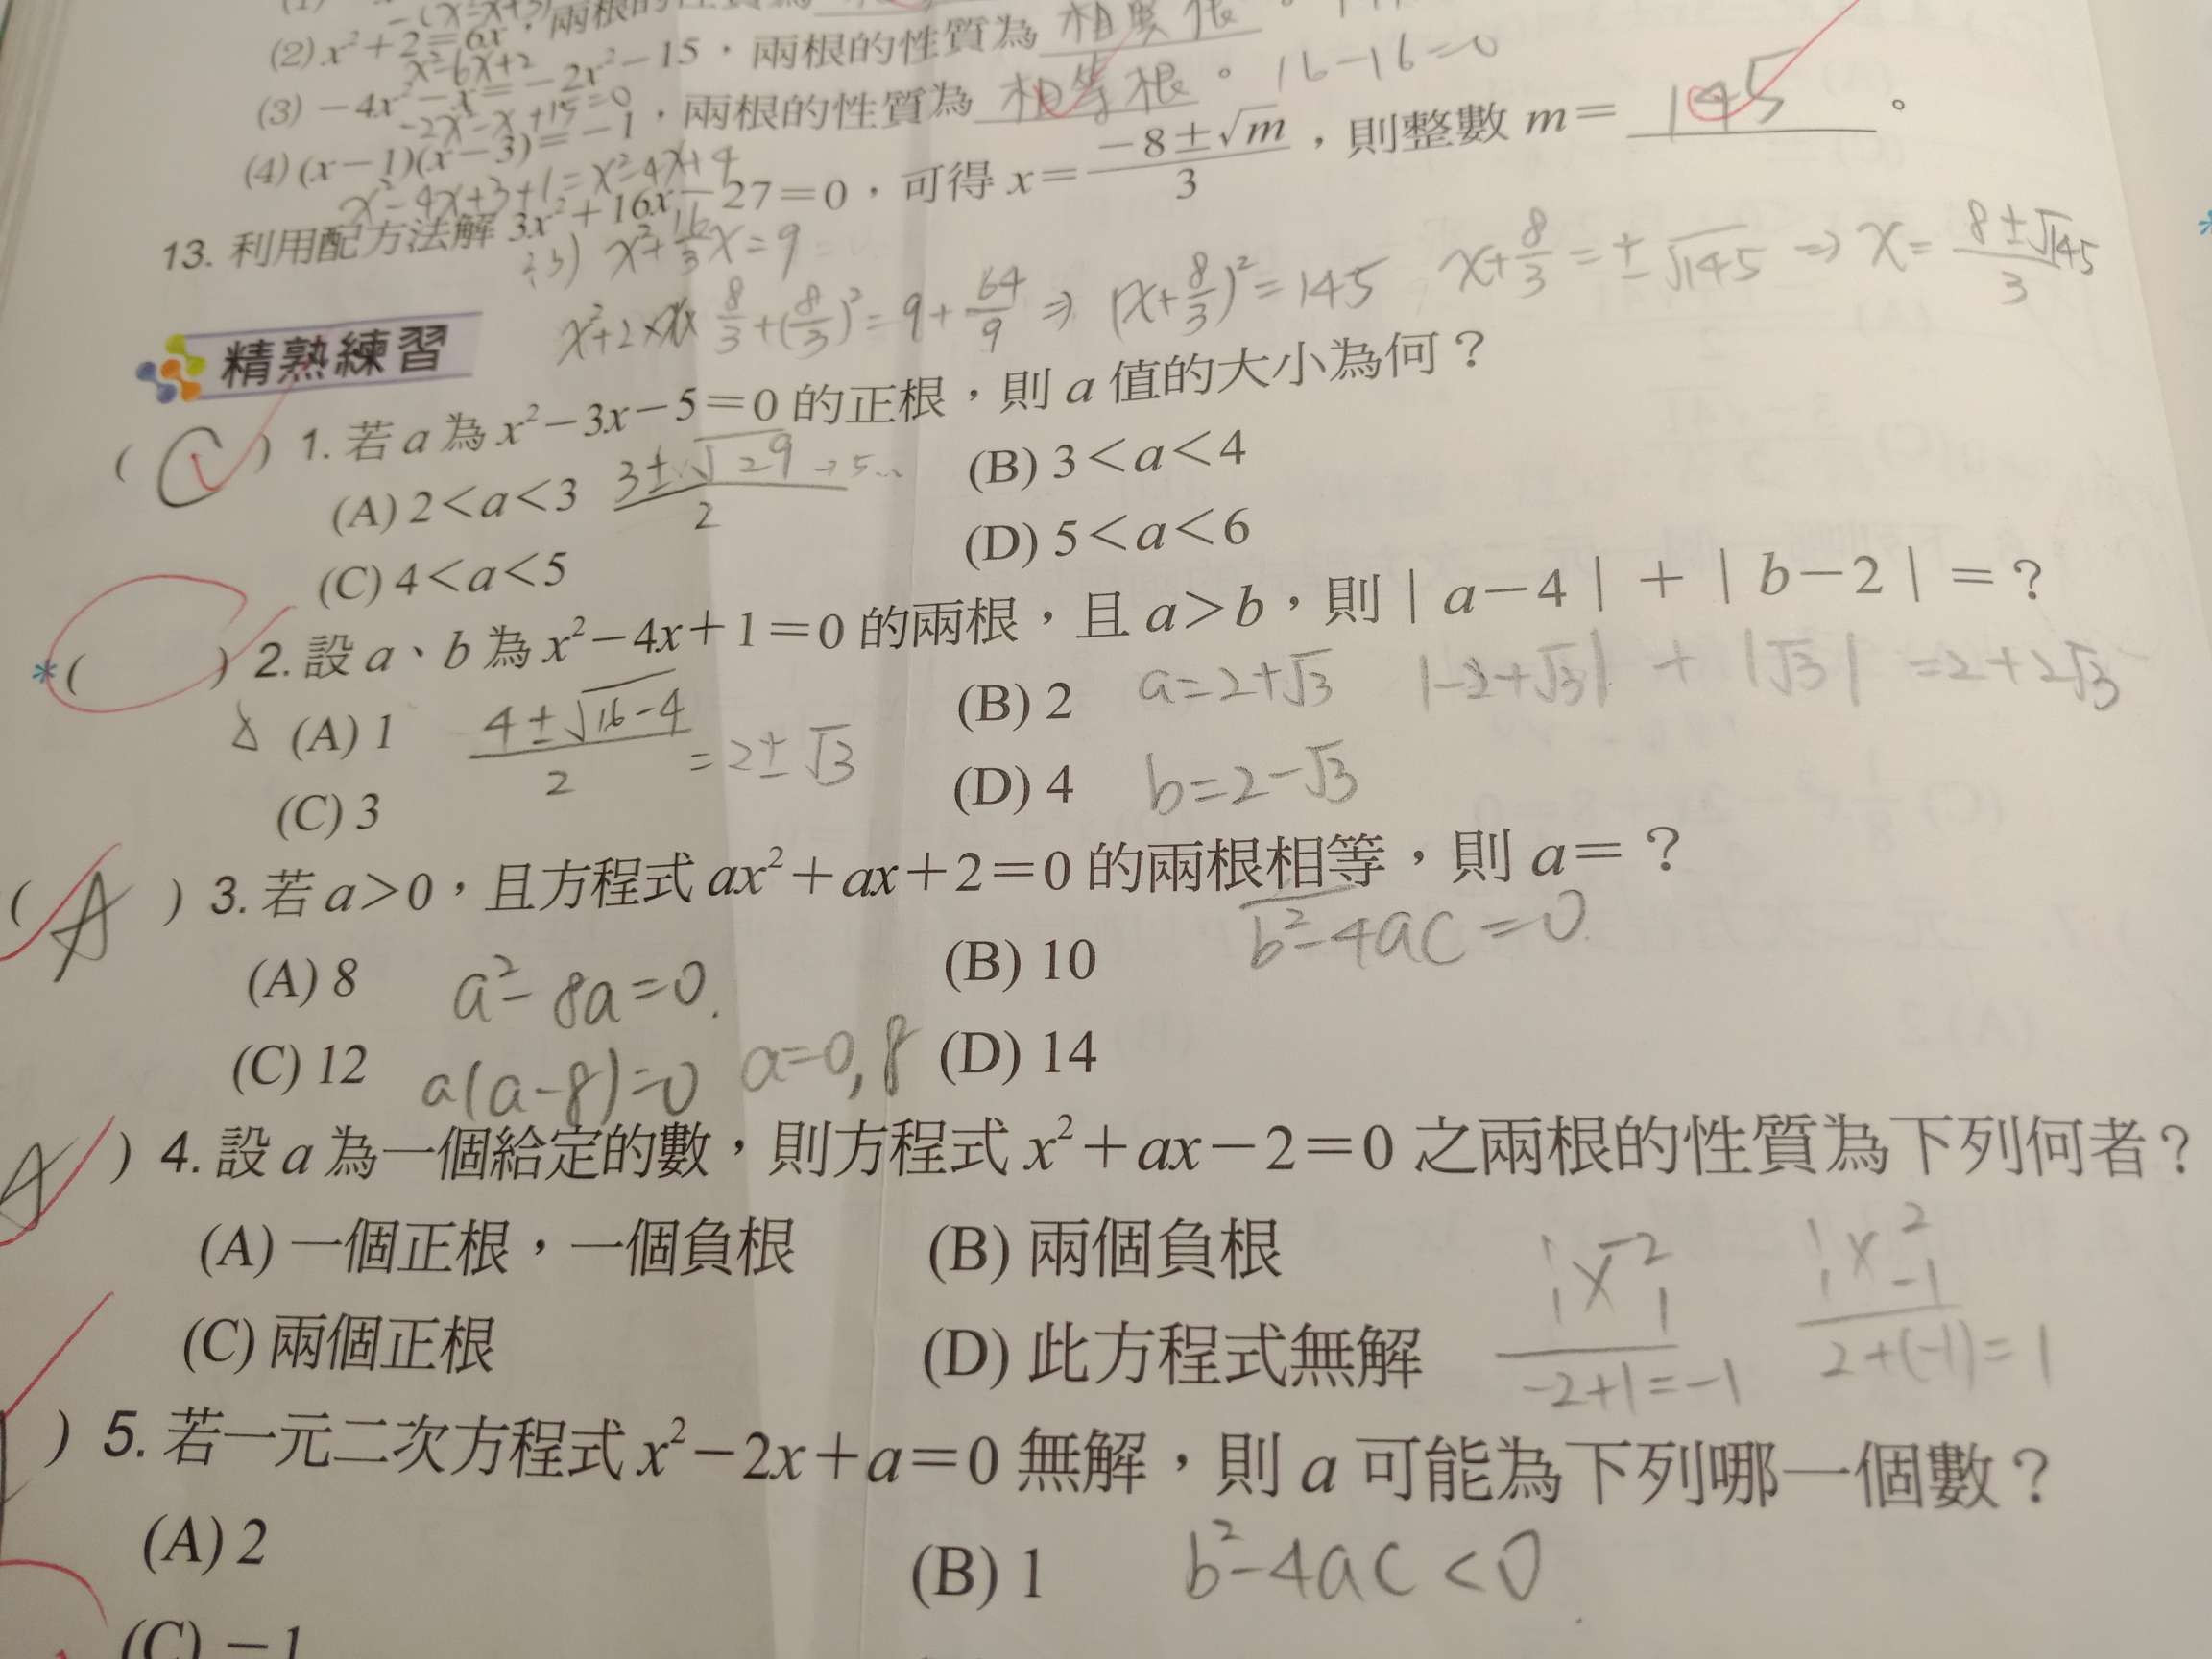 (2) x²+2=6x，兩根的性質為 相異根。
x²-6x+2
(3) −4x²−x=−2x²−15，兩根的性質為
-2x²-x+15=0
(4) (x−1)(x−3)=−1，兩根的性質為 相等根。 16-16=0
x²-4x+3+1=x²-4x+4
13. 利用配方法解 3x²+16x−27=0，可得 x=(−8±√m)/3，則整數 m= 145。
÷3) x²+16/3x=9
x²+2×x×8/3+(8/3)²=9+64/9 ⇒ (x+8/3)²=145 x+8/3=±√145 ⇒ x=(8±√145)/3
精熟練習
( C ) 1. 若 a 為 x²−3x−5=0 的正根，則 a 值的大小為何？
(A) 2<a<3 (3±√29)/2 →5... (B) 3<a<4
(C) 4<a<5 (D) 5<a<6
*( ) 2. 設 a、b 為 x²−4x+1=0 的兩根，且 a>b，則 | a−4 | + | b−2 | =？
(A) 1 (4±√16-4)/2 =2±√3 (B) 2 a=2+√3 |-2+√3| + |√3| =2+2√3
(C) 3 (D) 4 b=2-√3
( A ) 3. 若 a>0，且方程式 ax²+ax+2=0 的兩根相等，則 a=？
b²-4ac=0
(A) 8 a²-8a=0. (B) 10
(C) 12 a(a-8)=0 a=0,8 (D) 14
A ) 4. 設 a 為一個給定的數，則方程式 x²+ax−2=0 之兩根的性質為下列何者？
(A) 一個正根，一個負根 (B) 兩個負根
1 -2 1 2
1 1 1 -1
(C) 兩個正根 (D) 此方程式無解 -2+1=-1 2+(-1)=1
) 5. 若一元二次方程式 x²−2x+a=0 無解，則 a 可能為下列哪一個數？
(A) 2 (B) 1 b²-4ac<0
(C) −1